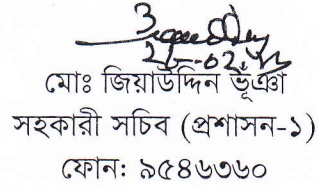 মোঃ জিয়াউদ্দিন ভূঞা
সহকারী সচিব (প্রশাসন-১)
ফোন: ৯৫৪৬৩৬০